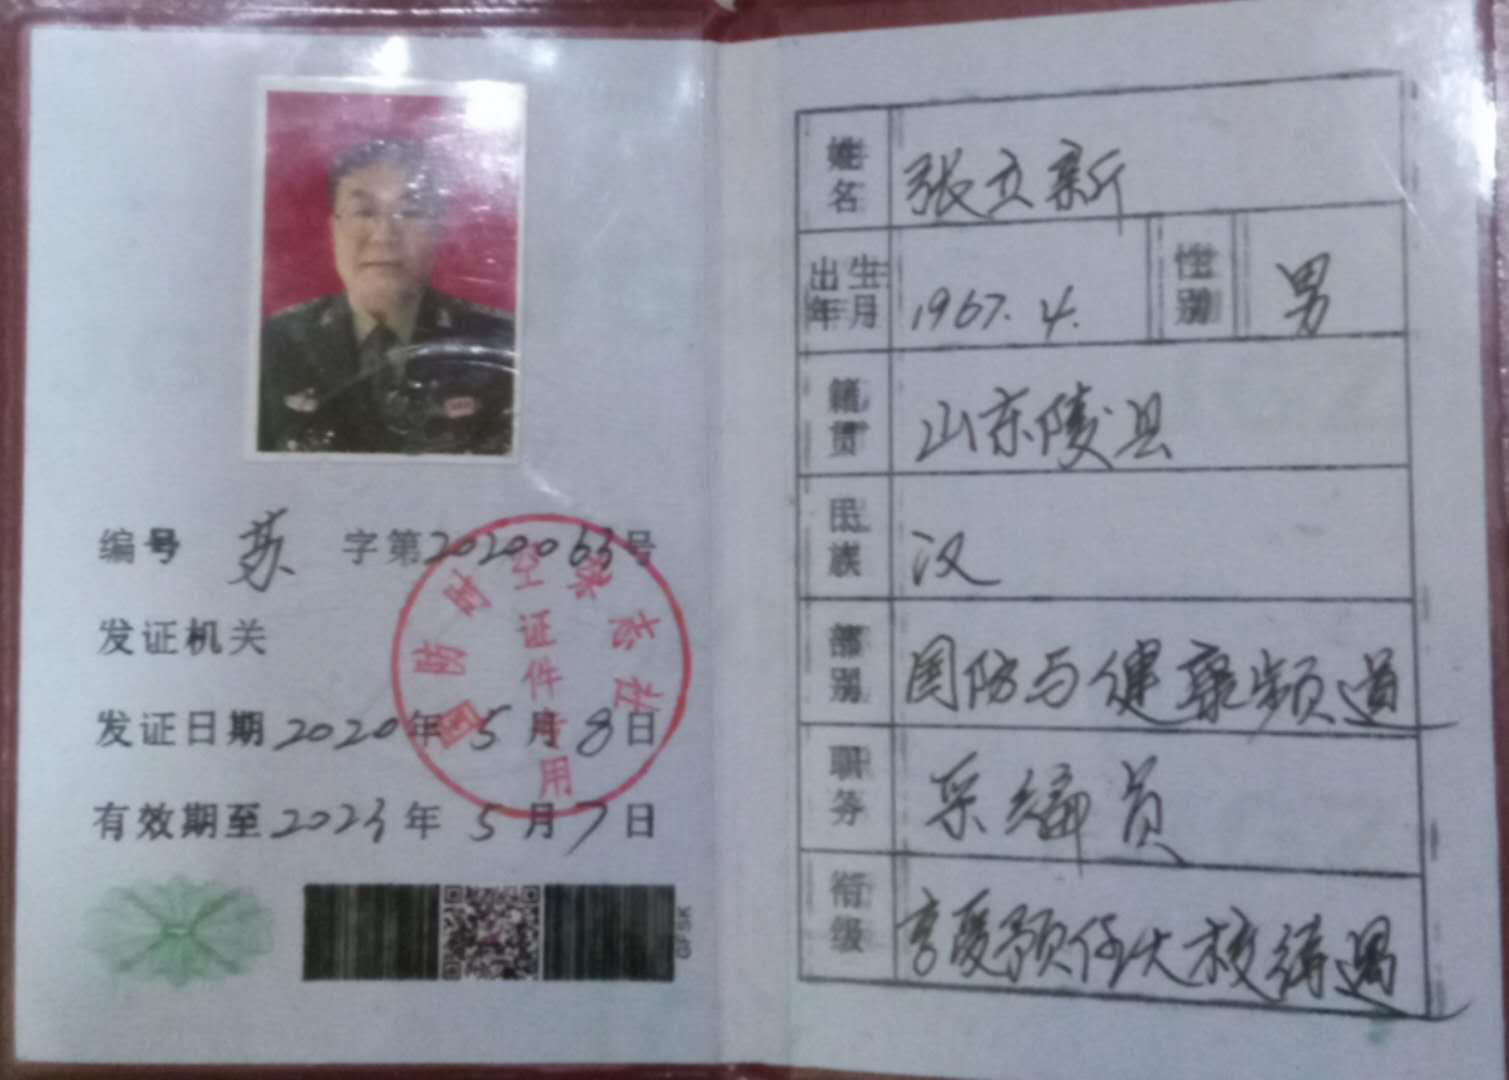 编号 苏 字第2020063号
发证机关
发证日期2020年5月8日
有效期至2023年5月7日
国防时空杂志社
证件专用
GFSK
姓名 张立新
出生年月 1967.4. 性别 男
籍贯 山东陵县
民族 汉
部别 国防与健康频道
职务 采编员
衔级 享受预任大校待遇